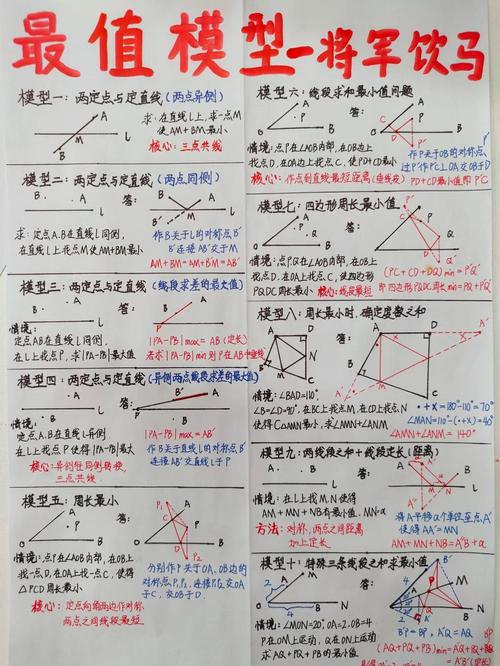 最值模型-将军饮马
模型一：两定点与定直线(两点异侧)
A
M
l
B
求：在直线l上,求一点M
使AM+BM最小
核心：三点共线
模型二：两定点与定直线(两点同侧)
A
B
l
答：
A
B
M
l
B'
求：定点A.B在直线l同侧,
在直线l上找点M使AM+BM最小
作B关于l的对称点B'
B'连接AB'交于M
AM+BM=AM+B'M=AB'
模型三：两定点与定直线(线段求差的最大值)
答：
情境：
定点AB在直线l同侧,
在l上找点P,求|PA-PB|最大值
|PA-PB|max=AB(定长)
若求|PA-PB|min则P在AB中垂线
模型四：两定点与定直线(异侧两点线段求差的最大值)
答：
情境：
定点A.B在直线l异侧
在l上找点P,使|PA-PB|最大
核心：异侧往同侧转换,
三点共线
|PA-PB|max=AB'
作B关于直线l的对称点B'
连接AB'交直线l于P
模型五：周长最小
答：
情境：点P在∠AOB内部,在OB上
找一点D,在OA上找一点C,使得
△PCD周长最小
核心：定点向角两边作对称
两点之间线段最短
分别作P关于OA、OB边的
对称点P₁,P₂,连接P₁P₂交OA
于C,交OB于D
模型六：线段求和最小值问题
情境：点P在∠AOB内部,在OB边上
找点D,在OA边上找点C,使PD+CD最小
核心：作点到直线最短距离(垂线段)
作P关于OB的对称点P'
过P'作P'C⊥OA交OB于D
PD+CD最小值即P'C
模型七：四边形周长最小值
情境：点P.Q在∠AOB内部,在OB上
找点D,在OA上找点C,使四边形
PQDC周长最小
核心：线段最短
(PC+CD+DQ)min=P'Q'
即四边形PQDC周长min=PQ+P'Q'
模型八：周长最小时,确定角度之和
答：
情境：∠BAD=110°
∠B=∠D=90°,在BC上找点M,在CD上找点N
使得C△AMN最小,求∠AMN+∠ANM
•+×=180°-110°=70°
∠MAN=110°-(•+×)=40°
∠AMN+∠ANM=140°
模型九：两线段之和+线段定长(距离)
答：
情境：在l上找M.N使得
AM+MN+NB有最小值,MN=a
方法：对称,两点之间距离
加上定长
将A平移a个单位至点A',
使得AA'=MN
AM+MN+NB=A''B+a
模型十：特殊三条线段之和求最小值
答：
情境：∠MON=20°,OA=2,OB=4
P在OM上运动,Q在ON上运动
求AQ+PQ+PB的最小值
B'P=BP,A'Q=AQ